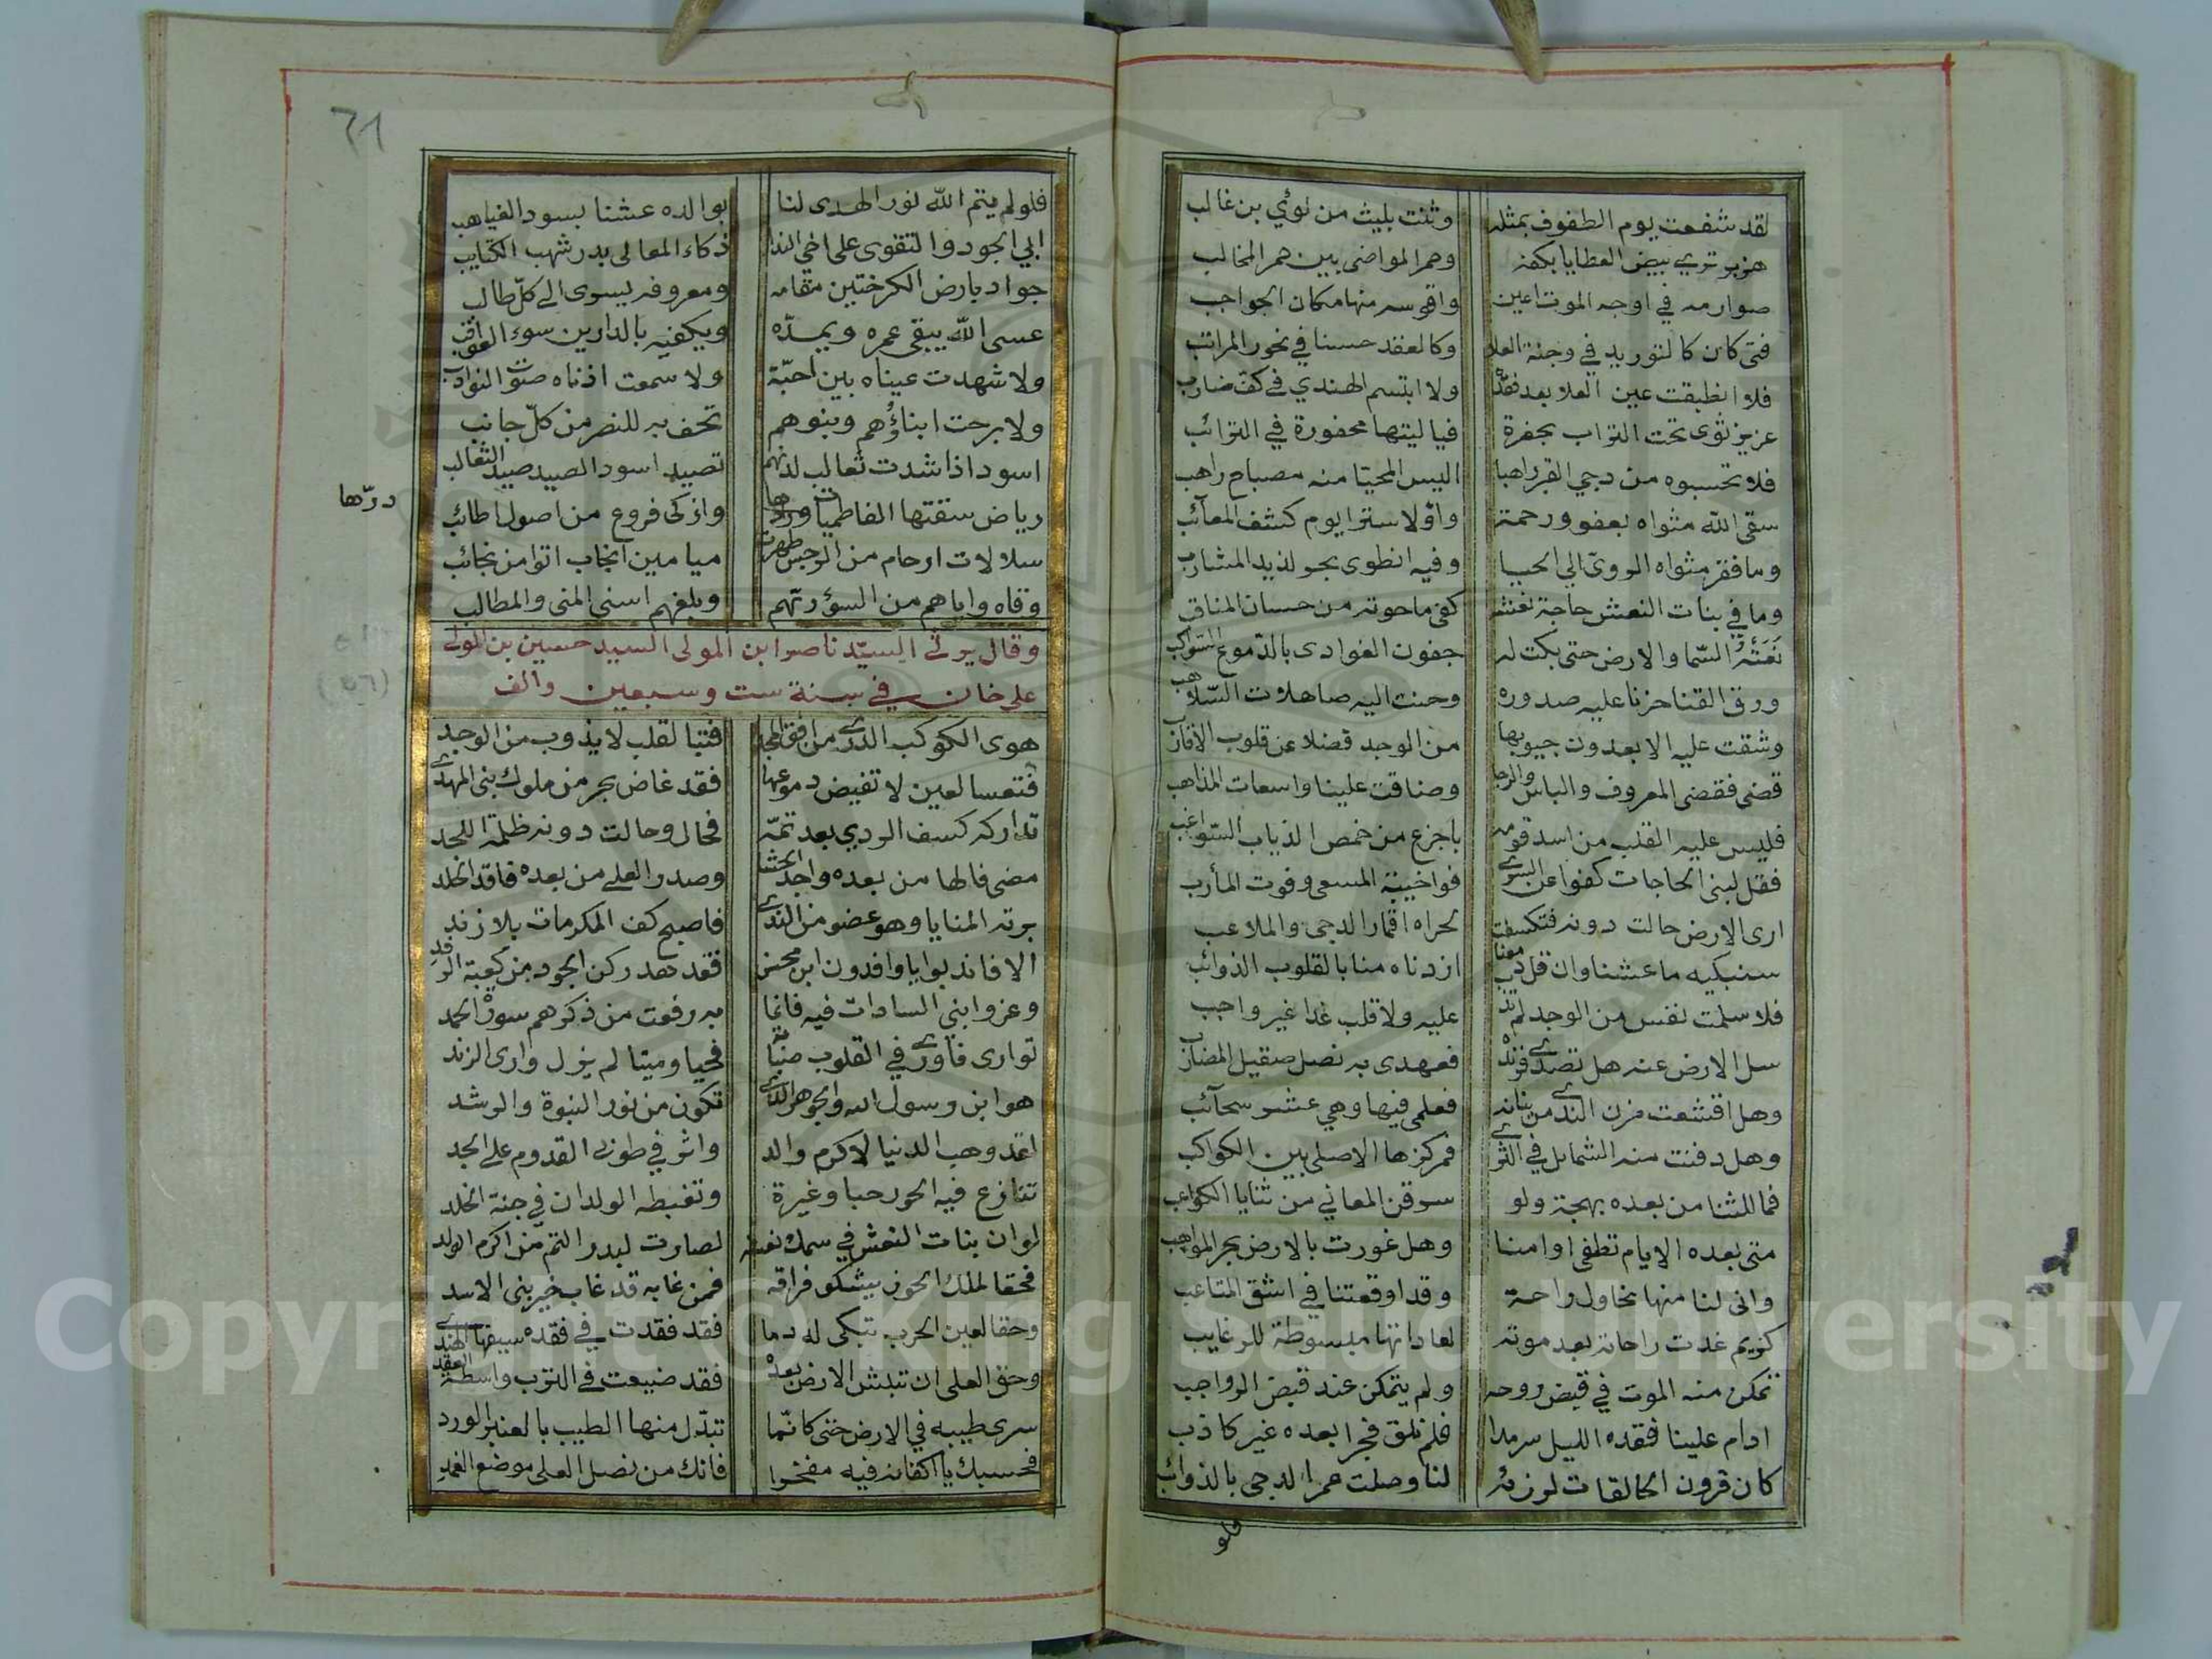 لقد شفعت يوم الطفوف بمثله وثنت بليث من لوئي بن غالب
هزبر تري بيض العطايا بكفه وحمر المواضى بين حمر المخالب
صوارمه في اوجه الموت اعين واقوسه منها مكان الحواجب
فتى كان كالتوريد في وجنة العلا وكالعقد حسنا في نحور المراتب
فلا انطبقت عين العلا بعد فقده ولا ابتسم الهندي في كف ضارب
عزيز ثوى تحت التراب بحفرة فيا ليتها محفورة في الترائب
فلا تحسبوه من دجي القبر راهبا اليس المحيا منه مصباح راهب
سقى الله مثواه بعفو ورحمة واولا سترا يوم كشف المعائب
وما فقر مثواه الرويّ الي الحيا وفيه انطوى بحر لذيد المشارب
وما في بنات النعش حاجة نعشه كفى ما حوته من حسان المناقب
نعته السما والارض حتى بكت له جفون الغوادى بالدموع السواكب
ورق القنا حزنا عليه صدوره وحنت اليه صاهلات السلاهب
وشقت عليه الابعدون جيوبها من الوجد فضلا عن قلوب الاقارب
قضى فقضى المعروف والباس والرجا وضاقت علينا واسعات المذاهب
فليس عليه القلب من اسد قومه باجزع من خمص الذياب السواغب
فقل لبنى الحاجات كفوا عن السرى فواخيبة المسعى وفوت المأرب
ارى الارض حالت دونه فتكسفت لحراه اقمار الدجى والملاعب
سنبكيه ما عشنا وان قل دمعنا ازدناه منا بالقلوب الذوائب
فلا سلمت نفس من الوجد لم تذب عليه ولا قلب غدا غير واجب
سل الارض عنه هل تصدى فرنده فعهدى به نصل صقيل المضارب
وهل اقشعت مزن الندى من بنانه فعلمى فيها وهي عشر سحآئب
وهل دفنت منه الشمايل في الثرى فمركزها الاصلى بين الكواكب
فما للثنا من بعده بهجة ولو سرقن المعاني من ثنايا الكواعب
متى بعده الايام تطفى اوامنا وهل غورت بالارض بحر المواهب
وانى لنا منها نحاول راحة وقد اوقعتنا في اشق المتاعب
كريم غدت راحاته بعد موته لعاداتها مبسوطة للرغايب
تمكن منه الموت في قبض روحه ولم يتمكن عند قبض الرواجب
ادام علينا فقده الليل سرمدا فلم نلق فجرا بعده غير كاذب
كان قرون الحالقات لرزئه لنا وصلت عمر الدجى بالذوائب
فلو
٦١
فلو لم يتم الله نور الهدى لنا بوالده عشنا بسود الغياهب
ابي الجود والتقوى على اخي الندا ذكاء المعالى بدر شهب الكتايب
جواد بارض الكرختين مقامه ومعروفه يسرى الى كلّ طالب
عسى الله يبقى عمره ويمدّه ويكفيه بالدارين سوء العواقب
ولا شهدت عيناه بين احبّة ولا سمعت اذناه صوت النوادب
ولا برحت ابناؤهم وبنوهم تحف به للنصر من كلّ جانب
اسود اذا شدت ثعالب لدنهم تصيد اسود الصيد صيد الثعالب
رياض سقتها الفاطميات ورّها وازكى فروع من اصول اطائب
درّها
سلالات ارحام من الرجس طهرت ميامين انجاب اتوا من نجائب
وقاه واياهم من السؤ ربّهم وبلغهم اسنى المنى والمطالب
وقال يرثي السيّد ناصر ابن المولى السيد حسين بن المولى
على خان في سنة ست وسبعين والف
هوى الكوكب الدرى من افق المجد فتبا لقلب لا يذوب من الوجد
فتعسا لعين لا تفيض دموعها فقد غاض بحر من ملوك بنى المهدى
تداركه كسف الردي بعد تمّه فحال وحالت دونه ظلمة اللحد
مضى فالها من بعده واجد الحشا وصدر العلى من بعده فاقد الخلد
برته المنايا وهو عضو من الندى فاصبح كف المكرمات بلا زند
الا فاندبوا يا وافدون ابن محسن فقد هد ركن الجود من كعبة الرفد
وعزوا بني السادات فيه فانما به رفعت من ذكرهم سورة الحمد
توارى فأورى في القلوب صبابة فحيا وميتا لم يزل وارى الزند
هو ابن رسول الله والجوهر الذى تكون من نور النبوة والرشد
لقد وهب الدنيا لاكرم والد واثر في طوبى القدوم على الجد
تنازع فيه الحور حبا وغيرة وتغبطه الولدان في جنة الخلد
لو ان بنات النعش في سمك نعشه لصارت لبدر التم من اكرم الولد
فحقا لملك الحوز يشكو فراقه فمن غابه قد غاب خير بنى الاسد
وحقا لعين الحرب تبكى له دما فقد فقدت في فقده سيفها الهندى
وحق العلى ان تنبش الارض بعده فقد ضيعت في الترب واسطة العقد
سرى طيبه في الارض حتى كانّما تبدّل منها الطيب بالعنبر الورد
فحسبك يا اكفانه فيه مفخرا فانك من نصل العلى موضع الغمد